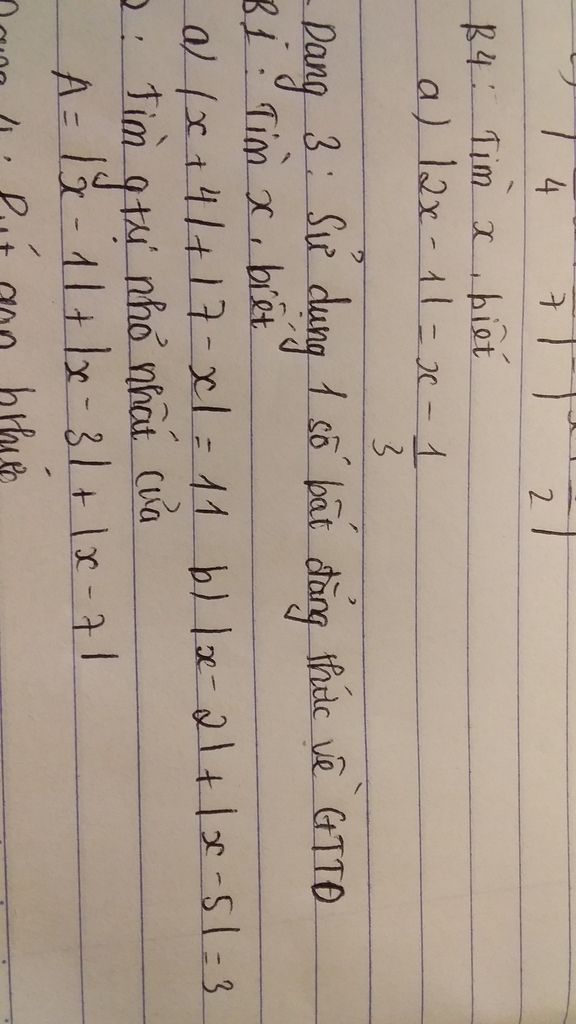 4 7 2
B4: Tìm x, biết
a) |2x - 1| = x - 1/3
Dạng 3: Sử dụng 1 số bất đẳng thức về GTTĐ
B1: Tìm x, biết
a) |x + 4| + |7 - x| = 11 b) |x - 2| + |x - 5| = 3
: Tìm gtrị nhỏ nhất của
A = |x - 1| + |x - 3| + |x - 7|